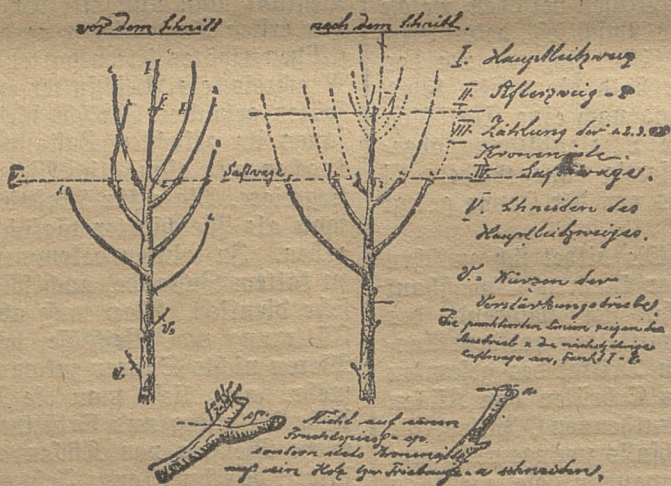 vor dem Schnitt
nach dem Schnitt.
I. Hauptleitzweig
II. Afterzweig -
III. Zählung der 1.2.3.
Kronen
Saftwage
IV. Saftwage.
V. Schneiden des
Hauptleitzweiges.
V. - Kürzen der
Verstärkungstriebe.
Die punktierten Linien zeigen den
Austrieb u. die nächstjährige
Saftwage an,
sp.
a.
Nicht auf einen
Fruchtspiess - sp.
sondern stets
auf ein Holz bzw. Triebauge - a schneiden.